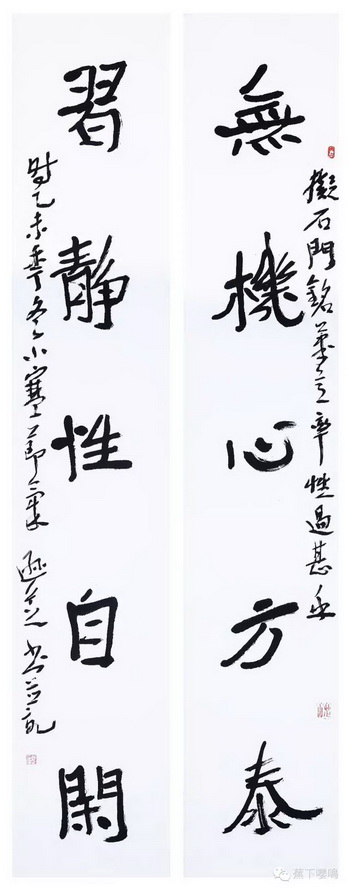 無機心方泰
擬石門銘筆意率性過甚矣
習靜性自閑
時乙未季冬小寒節氣
蕉下嚶鳴